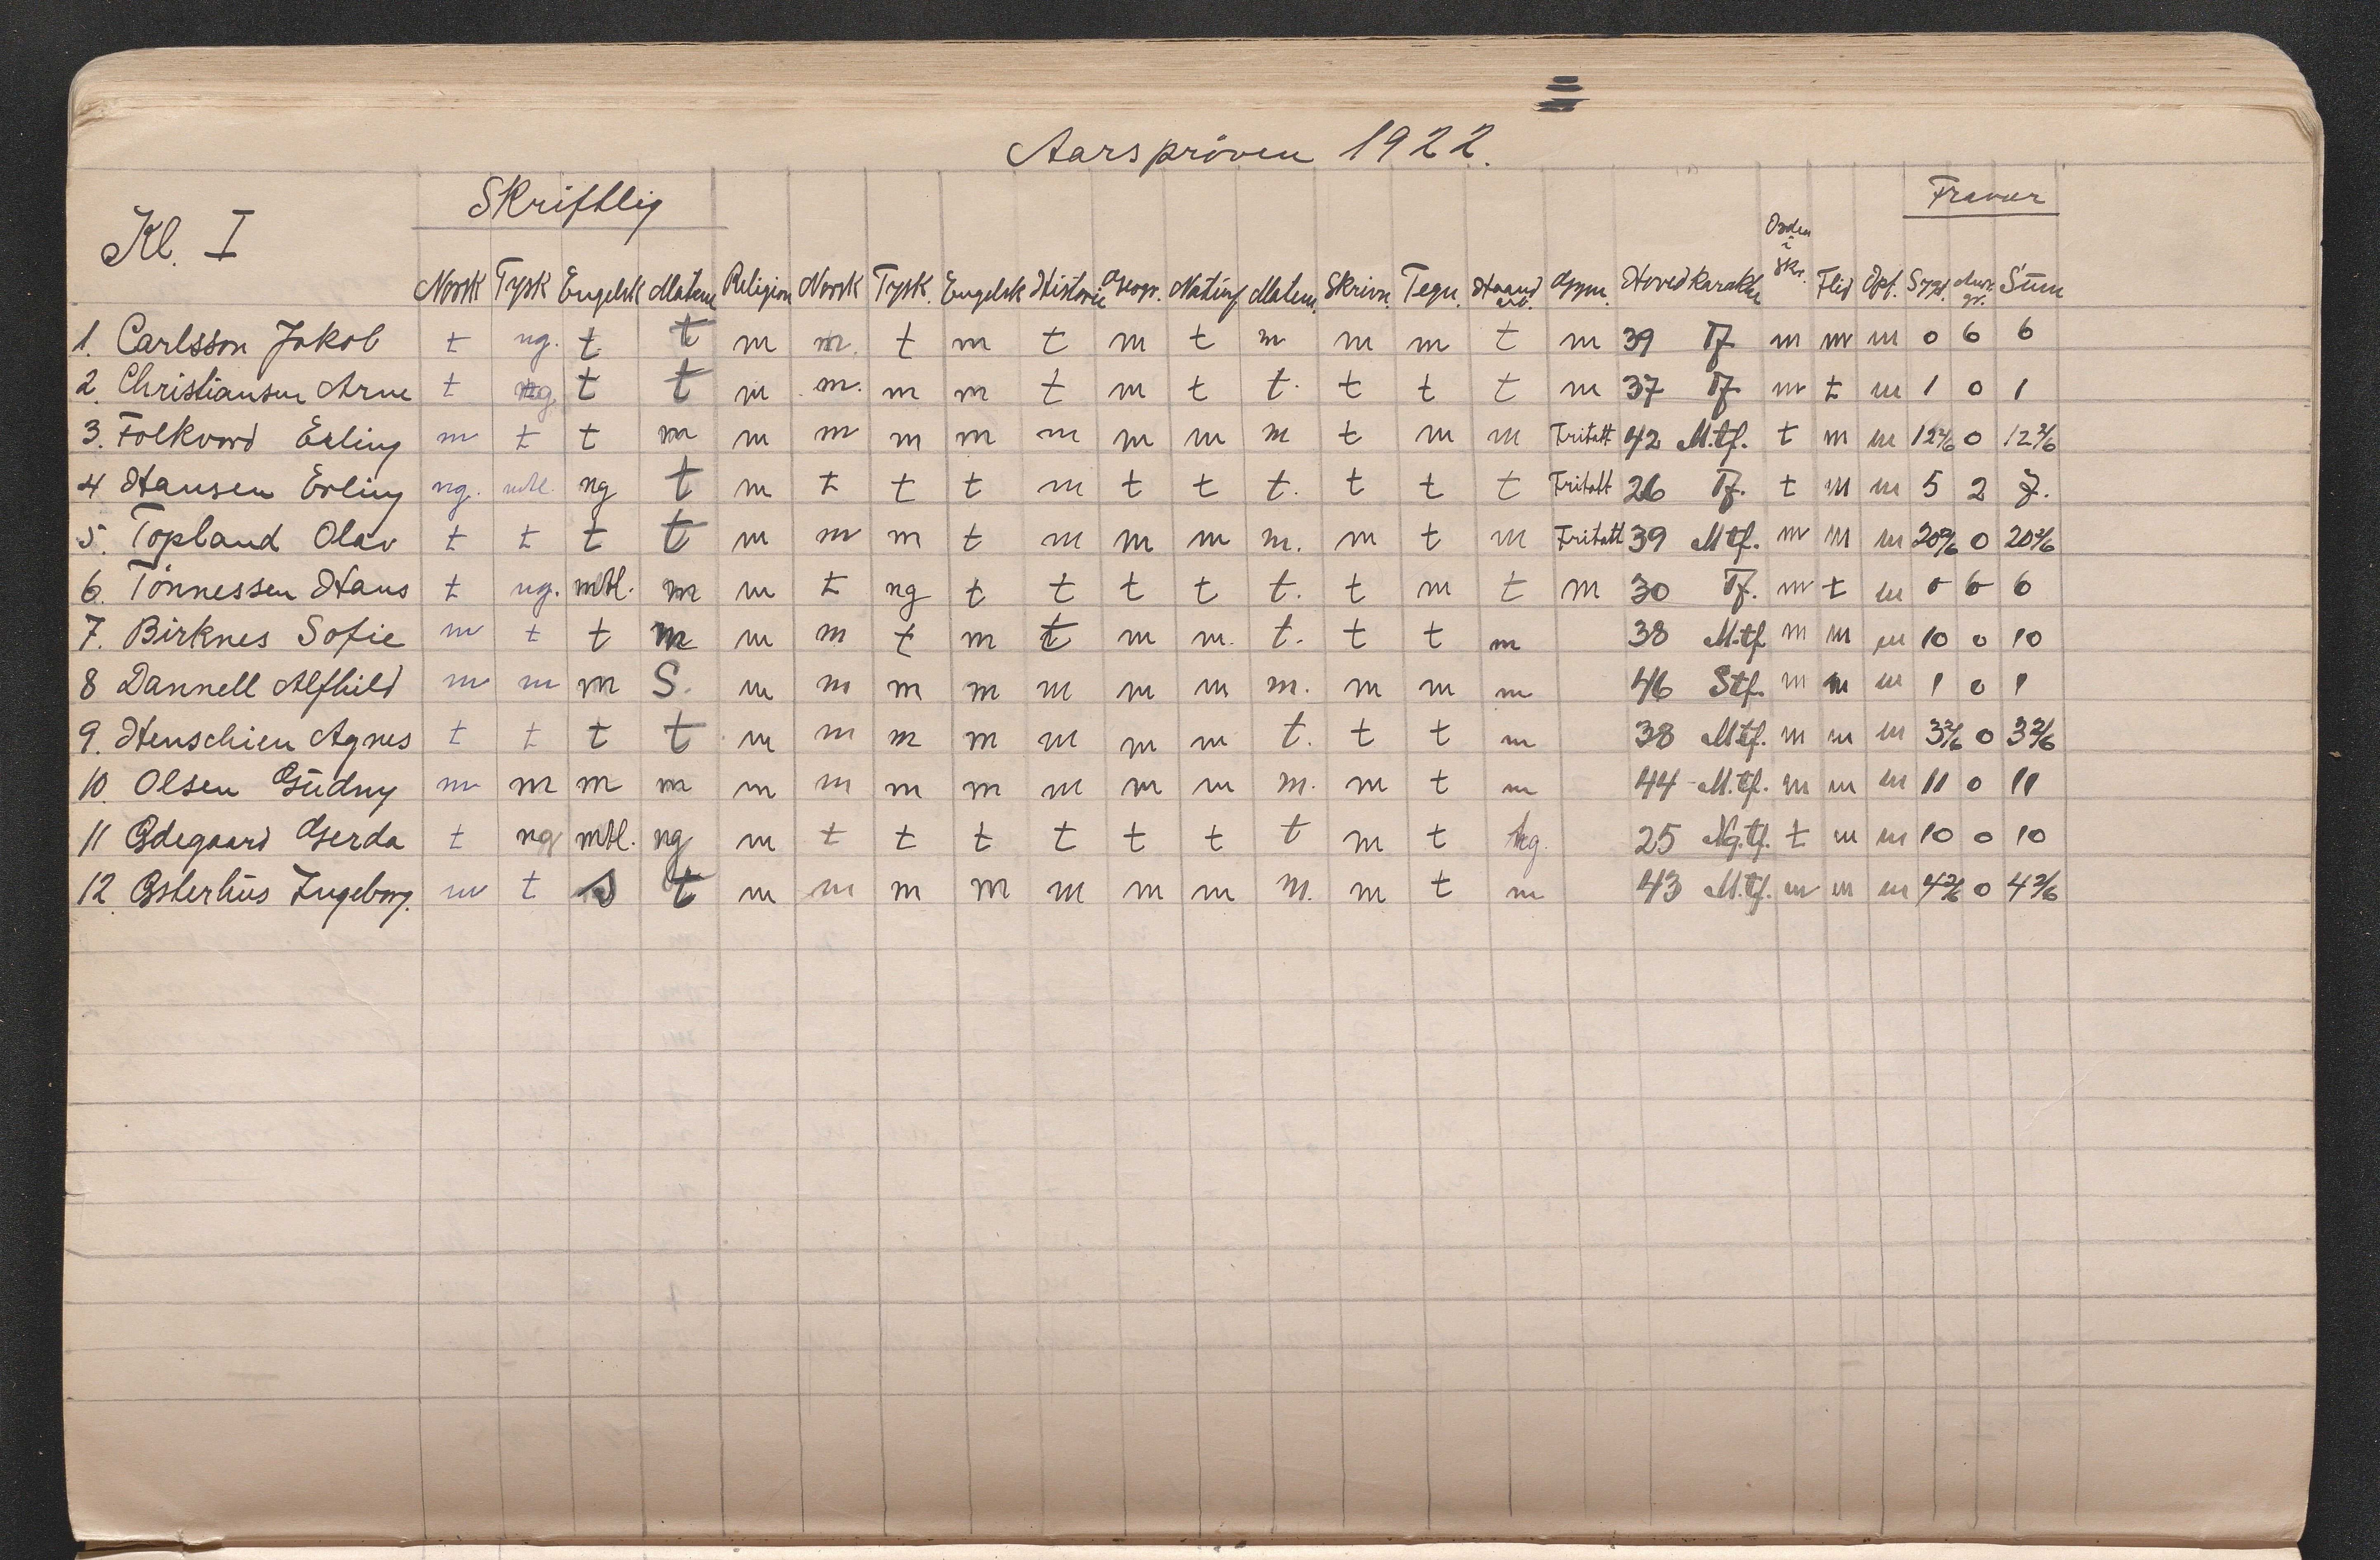 Aarsprøven 1922.
Skriftlig Fravær
Kl. I
Orden i Skr.
Norsk Tysk Engelsk Matem Religion Norsk Tysk. Engelsk Historie Geogr. Naturf. Matem. Skrivn. Tegn. Haand arb. Gymn. Hovedkarakter Flid Opf. Sygd. Sum
1. Carlsson Jakob t ng. t t m m. t m t m t m m m t m 39 Tf m m m 0 6 6
2. Christiansen Arne t ng t t m m. m m t m t t. t t t m 37 Tf m t m 1 0 1
3. Folkvord Erling m t t m m m m m m m m m t m m Fritatt 42 M.tf. t m m 12 2/6 0 12 2/6
4 Hansen Erling ng. mtl. ng t m t t t m t t t. t t t Fritatt 26 Tf. t m m 5 2 7.
5. Topland Olav t t t t m m m t m m m m. m t m Fritatt 39 Mtf. m m m 20 2/6 0 20 2/6
6. Tönnessen Hans t ng. mtl. m m t ng t t t t t. t m t m 30 Tf. m t m 0 6 6
7. Birknes Sofie m t t m m m t m t m m. t. t t m 38 M.tf m m m 10 0 10
8 Dannell Alfhild m m m S. m m m m m m m m. m m m 46 Stf. m m m 1 0 1
9. Henschien Agnes t t t t m m m m m m m t. t t m 38 Mtf. m m m 3 2/6 0 3 2/6
10. Olsen Gudny m m m m m m m m m m m m. m t m 44 M.tf. m m m 11 0 11
11 Ødegaard Gerda t ng mtl. ng m t t t t t t t m t ng. 25 Ng.tf. t m m 10 0 10
12. Østerhus Ingeborg. m t S t m m m m m m m m. m t m 43 M.tf. m m m 4 2/6 0 4 2/6